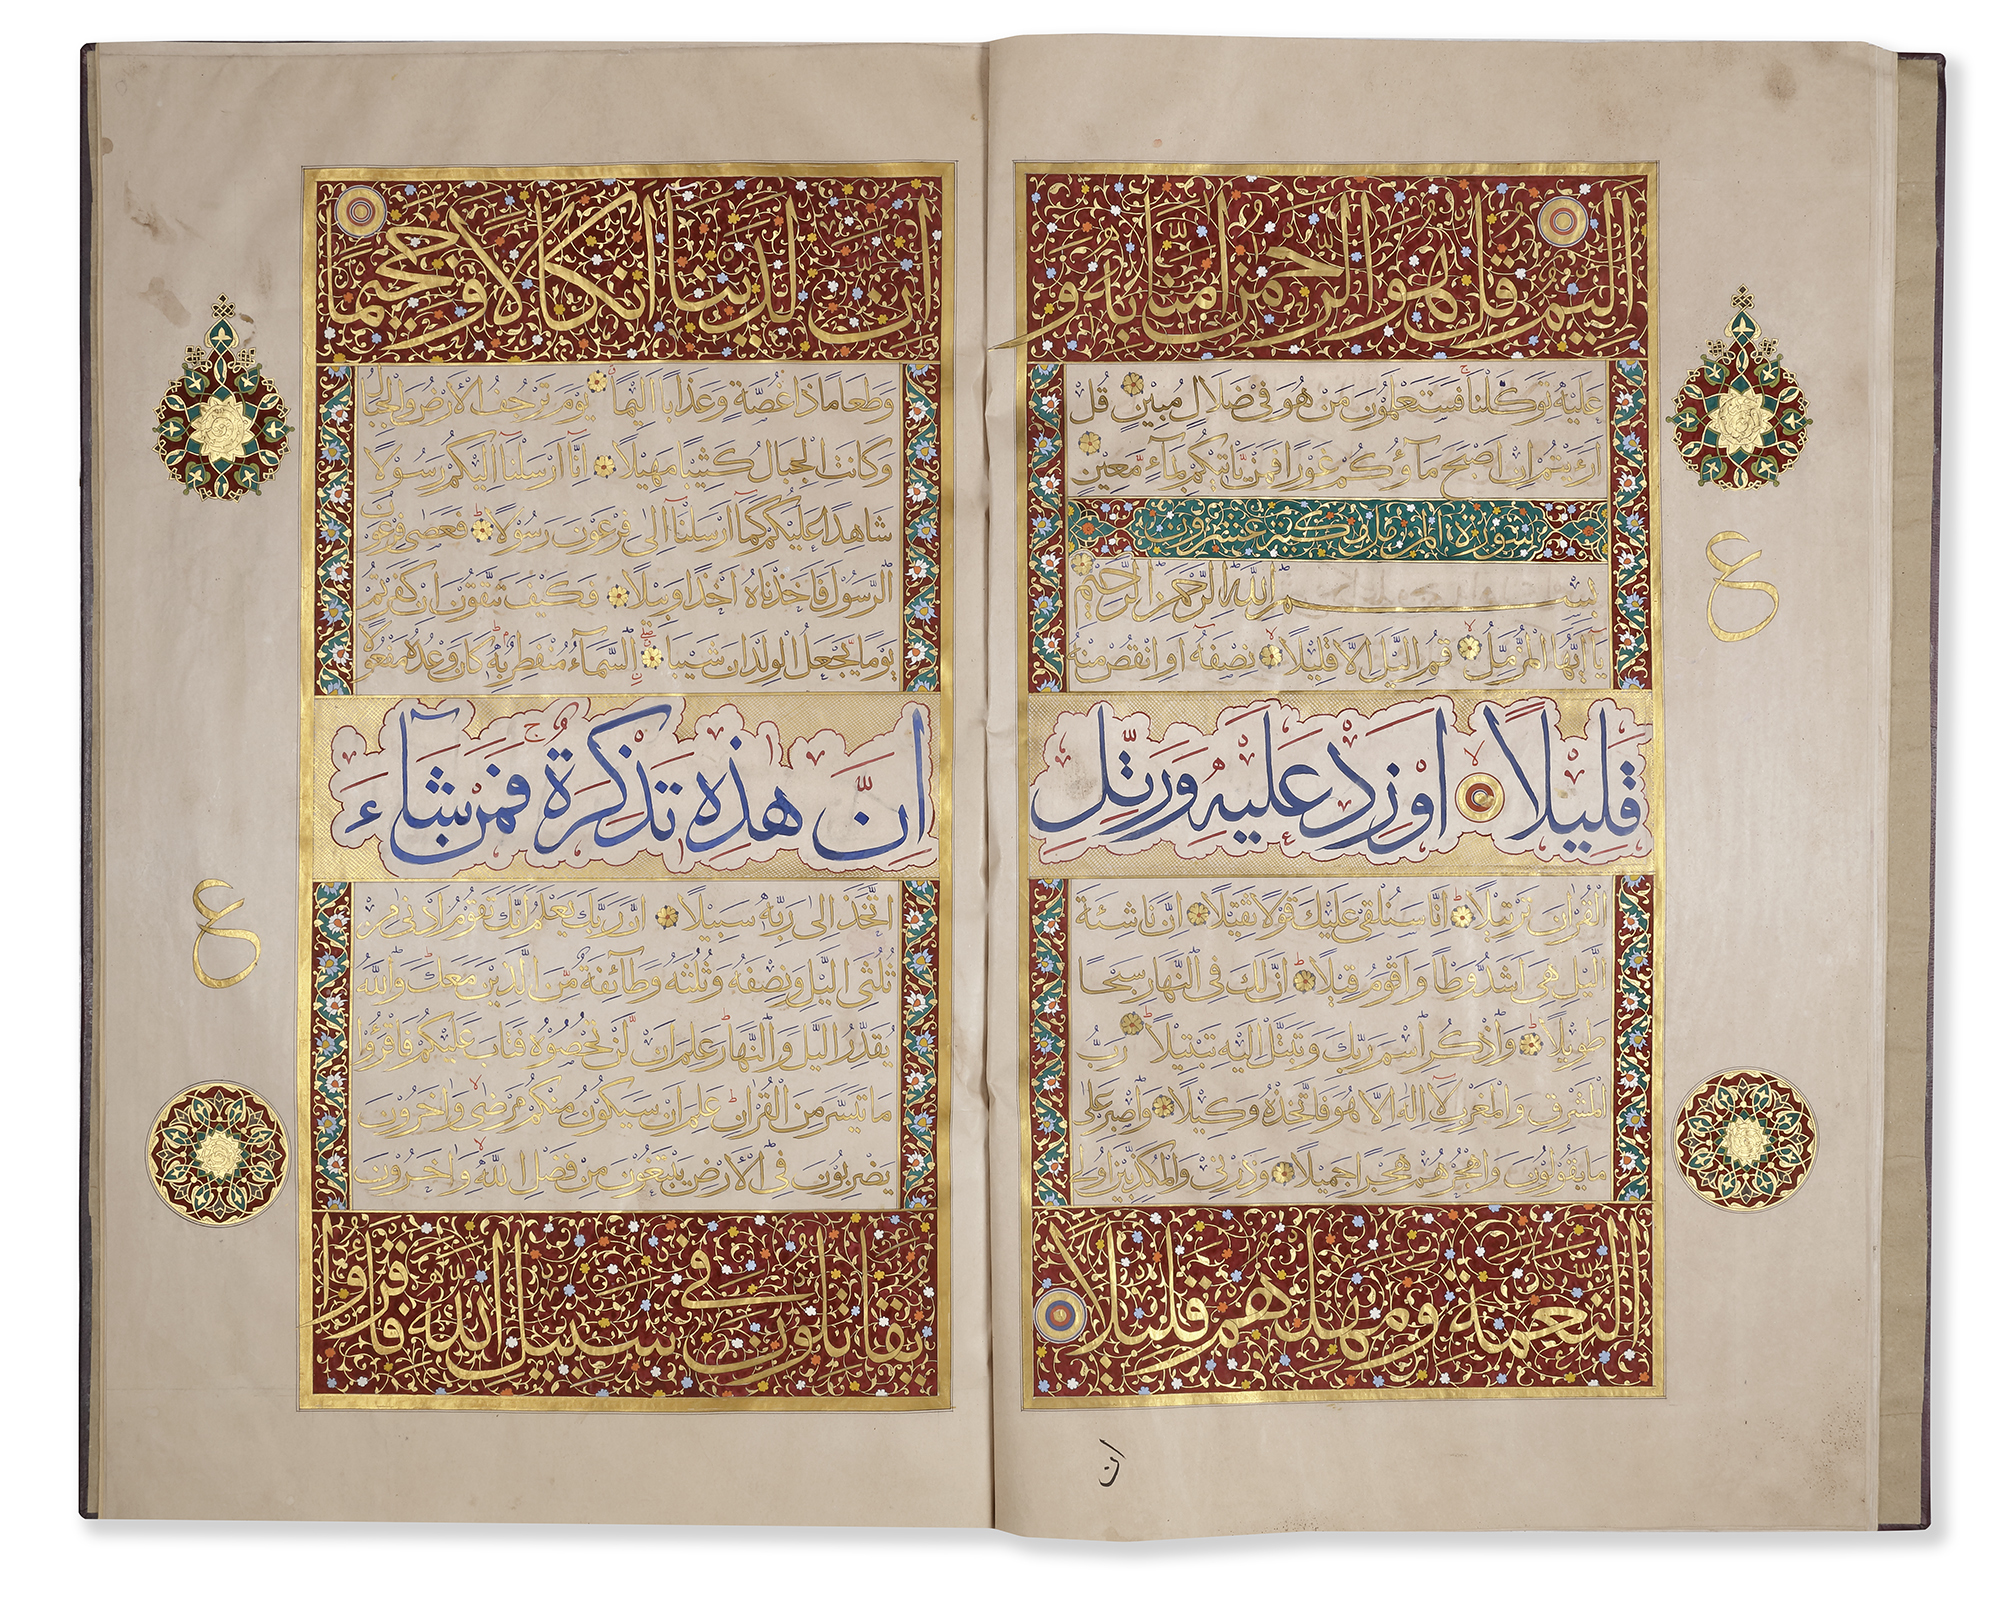 اليم قل هو الرحمن امنا به و
عليه توكلنا فستعلمون من هو في ضلال مبين قل
ارءيتم ان اصبح ماؤكم غورا فمن ياتيكم بماء معين
سورة المزمل مكية عشرون
بسم الله الرحمن الرحيم
يا ايها المزمل قم الليل الا قليلا نصفه او انقص منه
قليلا او زد عليه ورتل
القران ترتيلا انا سنلقي عليك قولا ثقيلا ان ناشئة
الليل هي اشد وطا واقوم قيلا ان لك في النهار سبحا
طويلا واذكر اسم ربك وتبتل اليه تبتيلا رب
المشرق والمغرب لا اله الا هو فاتخذه وكيلا واصبر على
ما يقولون واهجرهم هجرا جميلا وذرني والمكذبين اولي
النعمة ومهلهم قليلا
ع
ان
ان لدينا انكالا وجحيما
وطعاما ذا غصة وعذابا اليما يوم ترجف الارض والجبال
وكانت الجبال كثيبا مهيلا انا ارسلنا اليكم رسولا
شاهدا عليكم كما ارسلنا الى فرعون رسولا فعصى فرعون
الرسول فاخذناه اخذا وبيلا فكيف تتقون ان كفرتم
يوما يجعل الولدان شيبا السماء منفطر به كان وعده مفعولا
ان هذه تذكرة فمن شاء
اتخذ الى ربه سبيلا ان ربك يعلم انك تقوم ادنى من
ثلثي الليل ونصفه وثلثه وطائفة من الذين معك والله
يقدر الليل والنهار علم ان لن تحصوه فتاب عليكم فاقرؤا
ما تيسر من القران علم ان سيكون منكم مرضى واخرون
يضربون في الارض يبتغون من فضل الله واخرون
يقاتلون في سبيل الله فاقرؤا
ع